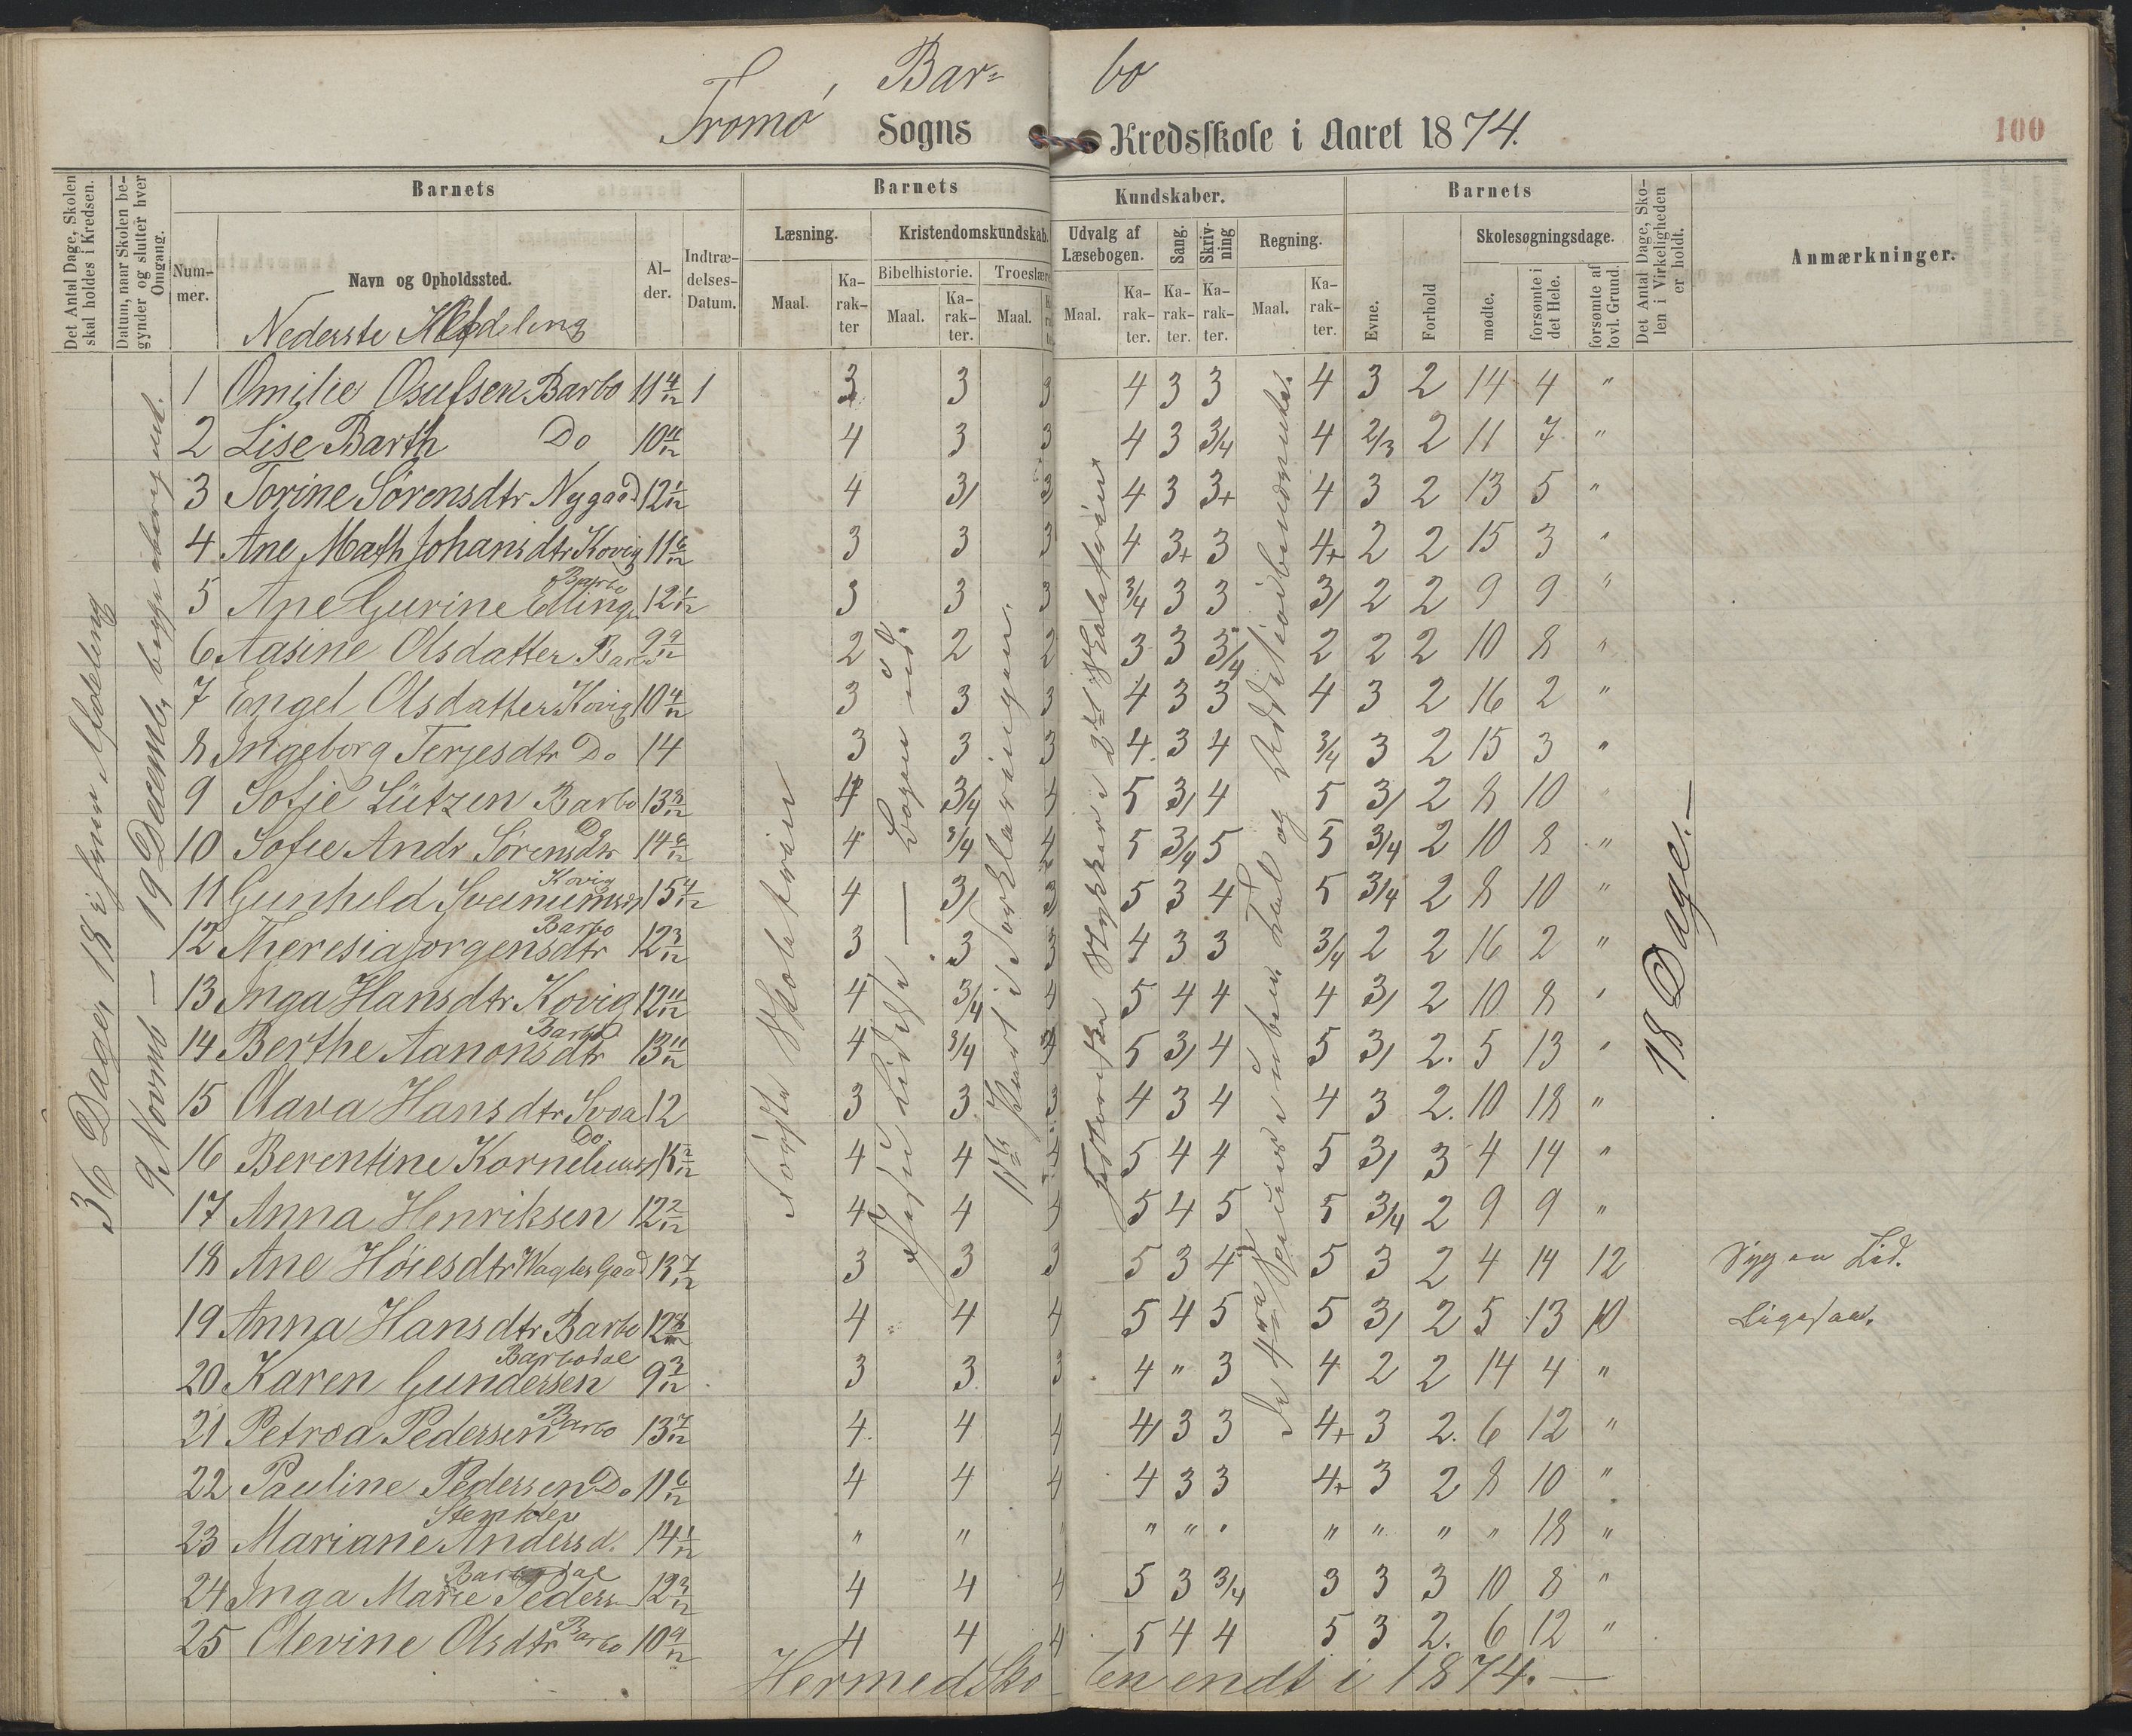 Bar= bo
Tromø, Sogns Kredsskole i Aaret 1874.
100
Det Antal Dage, Skolen skal holdes i Kredsen.
Datum, naar Skolen begynder og slutter hver Omgang.
Barnets
Barnets
Kundskaber.
Barnets
Det Antal Dage, Skolen i Virkeligheden er holdt.
Anmærkninger.
Nummer.
Navn og Opholdssted.
Alder.
Indtrædelses-Datum.
Læsning.
Kristendomskundskab.
Udvalg af Læsebogen.
Sang.
Skrivning
Regning.
Evne.
Forhold
Skolesøgningsdage.
Maal.
Karakter
Bibelhistorie.
Troeslære
Maal.
Karakter.
Maal.
Maal.
Karakter.
Karakter.
Karakter.
Maal.
Karakter.
mødte.
forsømte i det Hele.
forsømte af lovl. Grund.
Nederste Afdeling
36 Dage, 18 i hver Afdeling
9 Novemb — 19 Decemb, begge iberegnet.
Første Skoletrin
Jesu Lidelse — Bogen ud.
Kund i Forklaringen.
Historiske Stykker i 2det Skoletrin
De 4 Specier i uben. Tal og Addition i benævnte.
18 Dage.—
1 Omilie Osufsen Barbo 11 4/12 1 3 3 3 4 3 3 4 3 2 14 4 "
2 Lise Barth Do 10 11/12 4 3 3 4 3 3/4 4 2/3 2 11 7 "
3 Torine Sørensdtr Nygaad 12 1/12 4 3/ 3 4 3 3+ 4 3 2 13 5 "
4 Ane Math Johansdtr Kovig 11 6/12 3 3 3 4 3+ 3 4+ 2 2 15 3 "
5 Ane Gurine Elling Barbo 12 1/12 3 3 3 3/4 3 3 3/ 2 2 9 9 "
6 Aasine Olsdatter Barbo 9 9/12 2 2 2 3 3 3/4 2 2 2 10 8 "
7 Engel Olsdatter Kovig 10 4/12 3 3 3 4 3 3 4 3 2 16 2 "
8 Ingeborg Terjesdtr Do 14 3 3 3 4 3 4 3/4 3 2 15 3 "
9 Sofie Lützen Barbo 13 3/12 4 3/4 4 5 3/ 4 5 3/ 2 8 10 "
10 Sofie Andr Sørensdtr Do 14 9/12 4 3/4 4 5 3/4 5 5 3/4 2 10 8 "
11 Gunhild Kovig 15 4/12 4 3/ 3 5 3 4 5 3/4 2 8 10 "
12 Theresia Jørgensdtr Barbo 12 3/12 3 3 3 4 3 3 3/4 2 2 16 2 "
13 Inga Hansdtr Kovig 12 11/12 4 3/4 4 5 4 4 4 3/ 2 10 8 "
14 Berthe Aanonsdtr Barbo 13 11/12 4 3/4 4 5 3/ 4 5 3/ 2. 5 13 "
15 Olava Hansdtr Svoa 12 3 3 3 4 3 4 4 3 2. 10 18 "
16 Berentine Kornelius Do 4 4 4 5 4 4 5 3/ 3 4 14 "
17 Anna Henriksen 12 2/12 4 4 4 5 4 5 5 3/4 2 9 9 "
18 Ane Høiesdtr Vagtes Gaad 13 7/12 3 3 3 5 3 4 5 3 2 4 14 12 Syg en Tid.
19 Anna Hansdtr Barbo 12 4 4 4 5 4 5 5 3/ 2 5 13 10 Ligesaa.
20 Karen Gundersen Barbodal 9 3/12 3 3 3 4 " 3 4 2 2 14 4 "
21 Petrea Pedersen Barbo 13 7/12 4 4 4 4/ 3 3 4+ 3 2. 6 12 "
22 Pauline Pedersen Do 11 6/12 4 4 4 4 3 3 4+ 3 2 8 10 "
23 Mariane Andersd. 14 1/12 " " " " " " " " " " 18 "
24 Inga Marie Peders Barbodal 12 4 4 4 5 3 3/4 3 3 3 10 8 "
25 Olevine Olsdtr Barbo 10 9/12 4 4 4 5 4 4 5 3 2. 6 12 "
Hermed Sko- len endt i 1874.—